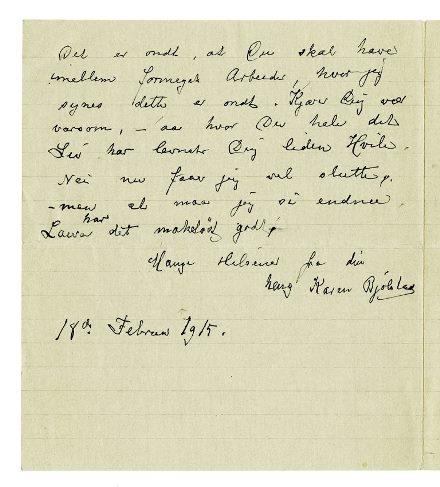 Det er ondt, at Du skal have
imellem saameget Arbeide, hvor jeg
synes dette er ondt. Kjære Dig vær
varsom, – aa hvor Du hele dit
Liv har levnet Dig liden Hvile.
Nei nu faar jeg vel slutte,
– men et maa jeg si endnu.
Laura har det makeløst godt,
Mange Hilsener fra din
heng Karen Bjølstad
18de Februar 1915.